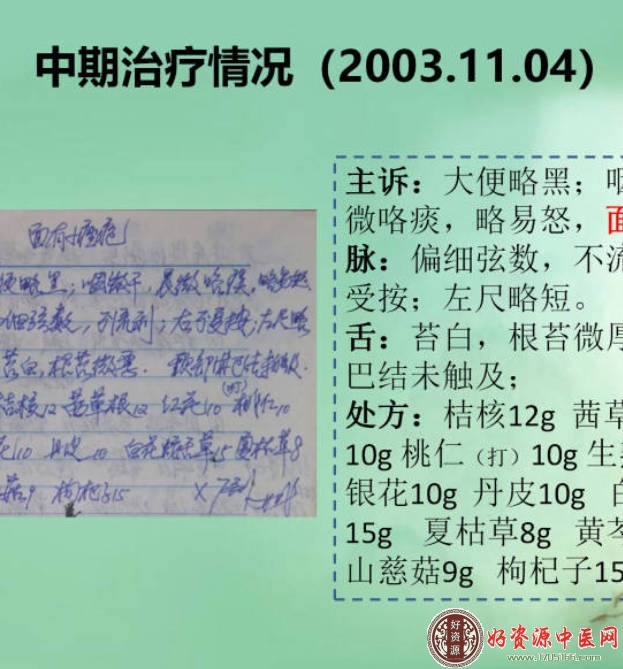 中期治疗情况（2003.11.04）
面有小痤疮
便略黑；咽微干，晨微咯痰，略易怒
细弦数，不流利；右不受按；左尺略
苔白，根苔微厚．颈部淋巴结未触及．
桔核12 茜草根12 红花10 桃仁(打)10
花10 丹皮10 白花蛇舌草15 夏枯草8
菇9 枸杞子15 ×7剂
主诉：大便略黑；咽
微咯痰，略易怒，面
脉：偏细弦数，不流
受按；左尺略短。
舌：苔白，根苔微厚
巴结未触及；
处方：桔核12g 茜草
10g 桃仁（打）10g 生
银花10g 丹皮10g 白
15g 夏枯草8g 黄芩
山慈菇9g 枸杞子15
好资源
好资源中医网